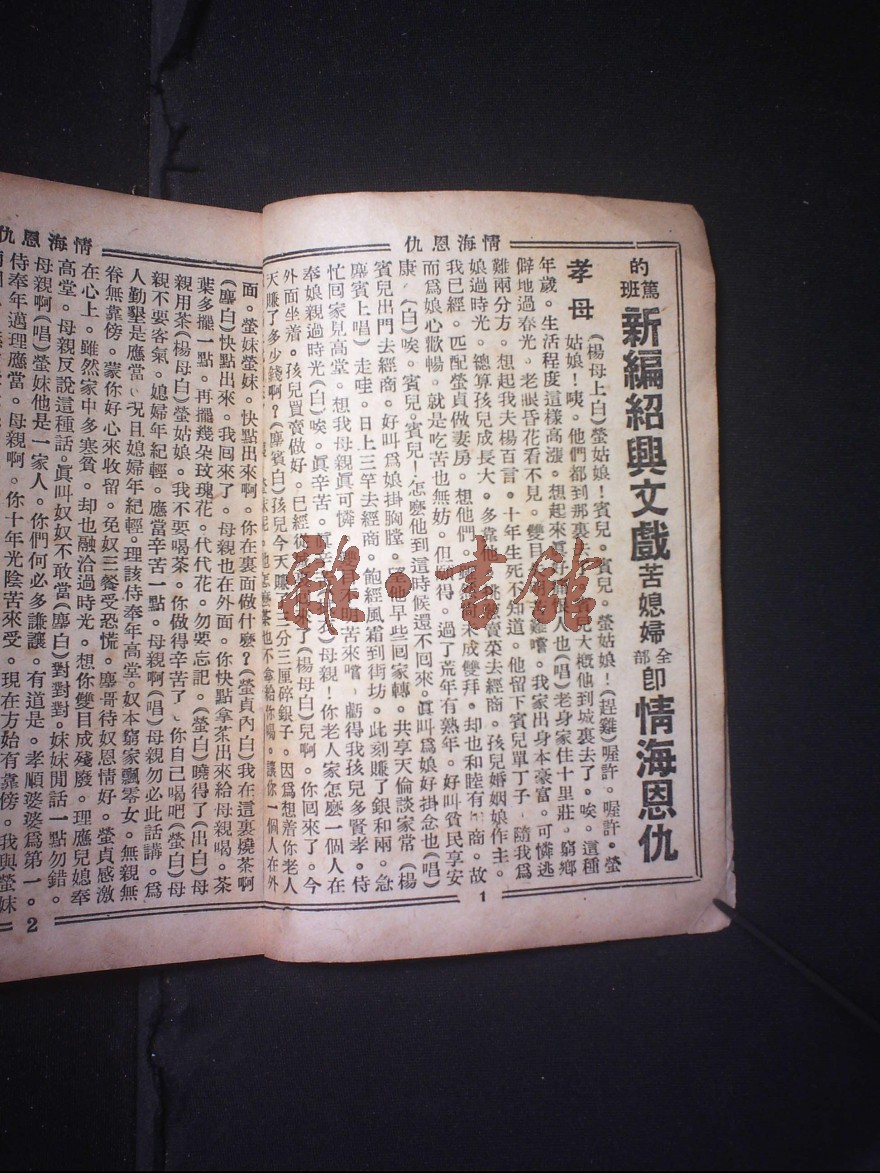 情海恩仇
的篤班 新編紹興文戲 苦媳婦 全部 即 情海恩仇
孝母 (楊母上白)螢姑娘！賓兒。賓兒。螢姑娘！(趕雞)喔許。喔許。螢
姑娘！咦。他們都到那裏去
兒大槪他到城裏去了。唉。這種
年歲。生活程度這樣高漲。想起來眞
人也(唱)老身家住十里莊。窮鄉
僻地過春光。老眼昏花看不見。雙目
難嚐。我家出身本豪富。可憐逃
難兩分方。想起我夫楊百言。十年生死不知道。他留下賓兒單丁子。隨我爲
娘過時光。總算孩兒成長大。多靠他
賣菜去經商。孩兒婚姻娘作主。
我已經。匹配螢貞做妻房。想他們。
未成雙拜。却也和睦有
商。故
而爲娘心歡暢。就是吃苦也無妨。但願得。過了荒年有熟年。好叫貧民享安
康。(白)唉。賓兒。賓兒！怎麼他到這時候還不回來。眞叫爲娘好掛念也(唱)
賓兒出門去經商。好叫爲娘掛胸膛。望他早些回家轉。共享天倫談家常(楊
麐賓上唱)走哇。日上三竿去經商。飽經風霜到街坊。此刻賺了銀和兩。急
忙回家見高堂。想我母親眞可憐
苦來嚐。虧得我孩兒多賢孝。侍
奉娘親過時光(白)唉。眞辛苦。眞辛
母親！你老人家怎麼一個人在
外面坐着。孩兒買賣做好。已經從
了(楊母白)兒啊。你回來了。今
天賺了多少錢啊？(麐賓白)孩兒今天賺
三分三厘碎銀子。因爲想着你老人
螢妹呢。他怎麼茶也不拿給你喝。讓你一個人在外
1
情海恩仇
面。螢妹螢妹。快點出來啊。你在裏面做什麼？(螢貞內白)我在這裏燒茶啊
(麐白)快點出來。我回來了。母親也在外面。你快點拿茶出來給母親喝。茶
葉多擺一點。再擺幾朶玫瑰花。代代花。勿要忘記。(螢白)曉得了(出白)母
親用茶(楊母白)螢姑娘。我不要喝茶。你做得辛苦了。你自己喝吧(螢白)母
親不要客氣。媳婦年紀輕。應當辛苦一點。母親啊(唱)母親勿必此話講。爲
人勤墾是應當。况且媳婦年紀輕。理該侍奉年高堂。奴本窮家飄零女。無親無
眷無靠傍。蒙你好心來收留。免奴三餐受恐慌。麐哥待奴恩情好。螢貞感激
在心上。雖然家中多寒貧。却也融洽過時光。想你雙目成殘廢。理應兒媳奉
高堂。母親反說這種話。眞叫奴奴不敢當(麐白)對對對。妹妹閒話一點勿錯。
母親啊(唱)螢妹他是一家人。你們何必多謙讓。有道是。孝順婆婆爲第一。
侍奉年邁理應當。母親啊。你十年光陰苦來受。現在方始有靠傍。我與螢妹
2
雜·書館